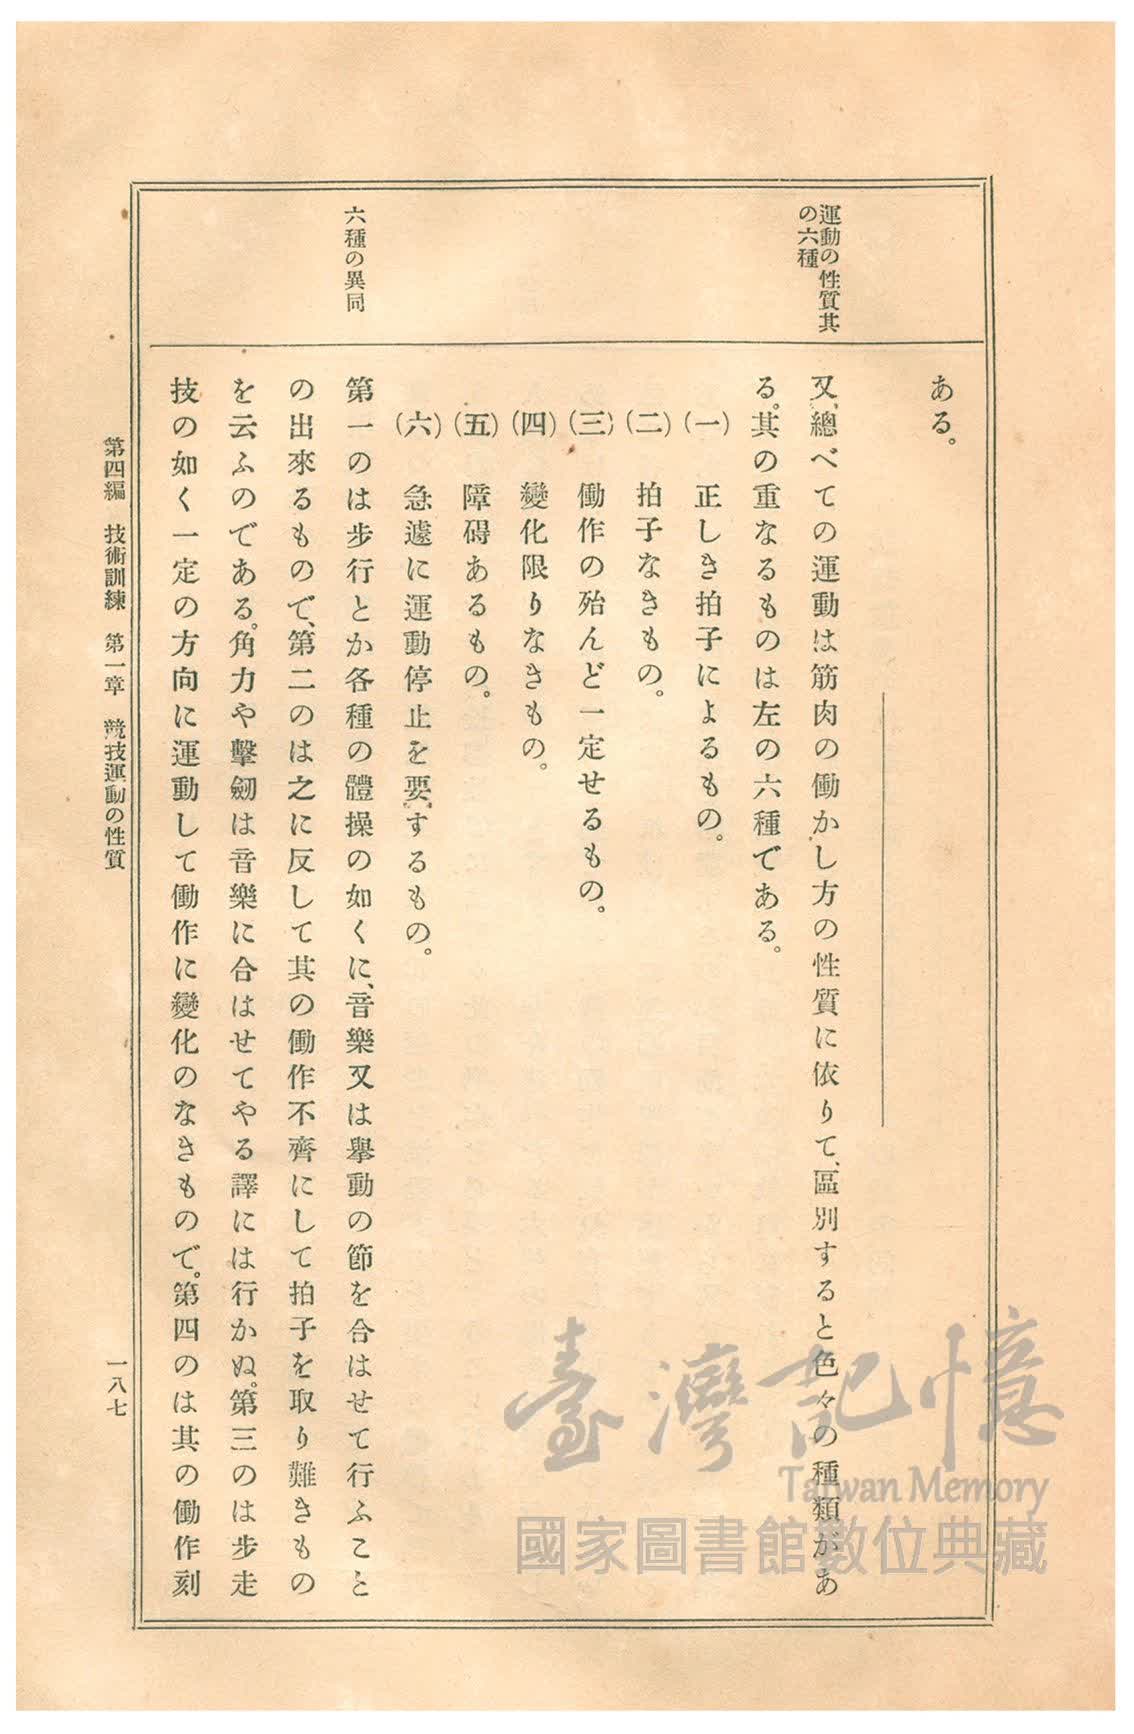 運動の性質其
の六種
六種の異同
ある。
又、總べての運動は筋肉の働かし方の性質に依りて、區別すると色々の種類があ
る。其の重なるものは左の六種である。
(一)　正しき拍子によるもの。
(二)　拍子なきもの。
(三)　働作の殆んど一定せるもの。
(四)　變化限りなきもの。
(五)　障碍あるもの。
(六)　急遽に運動停止を要するもの。
第一のは步行とか各種の體操の如くに、音樂又は擧動の節を合はせて行ふこと
の出來るもので、第二のは之に反して其の働作不齊にして拍子を取り難きもの
を云ふのである。角力や擊劒は音樂に合はせてやる譯には行かぬ。第三のは步走
技の如く一定の方向に運動して働作に變化のなきもので。第四のは其の働作刻
第四編　技術訓練　第一章　競技運動の性質
一八七
臺灣記憶
Taiwan Memory
國家圖書館數位典藏